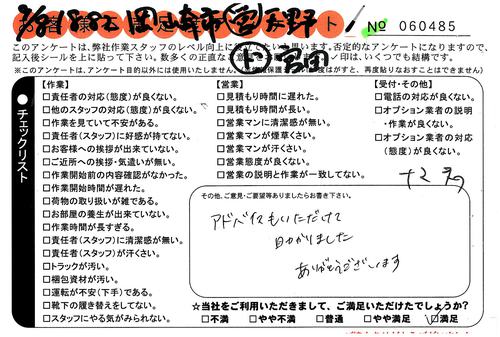 № 060485
このアンケートは、弊社作業スタッフのレベル向上に
岡山
長野
宮田
記入後シールを上に貼って下さい。
一印は、いくつでも結構です。
※このアンケートは、アンケート目的以外には使用いたしません。
がすと、再度貼りなおすことはできません）
チェックリスト
【作業】
□責任者の対応（態度）が良くない。
□他のスタッフの対応（態度）が良くない。
□作業を見ていて不安がある。
□責任者（スタッフ）に好感が持てない。
□お客様への挨拶が出来ていない。
□ご近所への挨拶・気遣いが無い。
□作業開始前の内容確認がなかった。
□作業開始時間が遅れた。
□荷物の取り扱いが雑である。
□お部屋の養生が出来ていない。
□作業時間が長すぎる。
□責任者（スタッフ）に清潔感が無い。
□責任者（スタッフ）が汗くさい。
□トラックが汚い。
□梱包資材が汚い。
□運転が不安（下手）である。
□靴下の履き替えをしてない。
□スタッフにやる気がみられない。
【営業】
□見積もり時間に遅れた。
□見積もり時間が長い。
□営業マンに清潔感が無い。
□営業マンが煙草くさい。
□営業マンが汗くさい。
□営業態度が良くない。
□営業の説明と作業が一致してない。
【受付・その他】
□電話の対応が良くない。
□オプション業者の説明
・作業が良くない。
□オプション業者の対応
（態度）が良くない。
その他、ご意見・ご要望等ありましたらお書き下さい。
アドバイスもいただけて
助かりました
ありがとうございます
☆当社をご利用いただきまして、ご満足いただけてでしょうか？
□不満 □やや不満 □普通 □やや満足 □満足